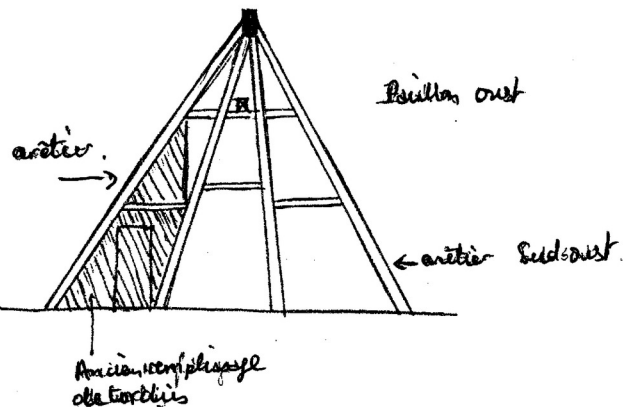 Pavillon ouest
arêtier.
arêtier Sud-ouest.
Ancien remplissage
de torchis